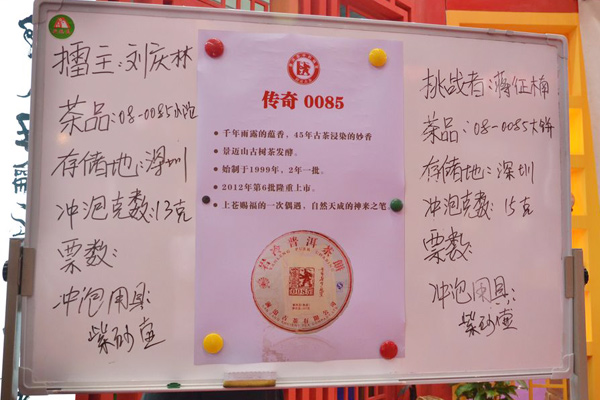 擂主:刘庆林
茶品:08-0085小沱
存储地:深圳
冲泡克数:13克
票数:
冲泡用具:
紫砂壶
传奇 0085
千年雨露的蕴香，45年古茶浸染的妙香
景迈山古树茶发酵。
始制于1999年，2年一批。
2012年第6批隆重上市。
上苍赐福的一次偶遇，自然天成的神来之笔
岩冷普洱茶饼
0085
挑战者:蒋征楠
茶品:08-0085大饼
存储地:深圳
冲泡克数:15克
票数:
冲泡用具:
紫砂壶